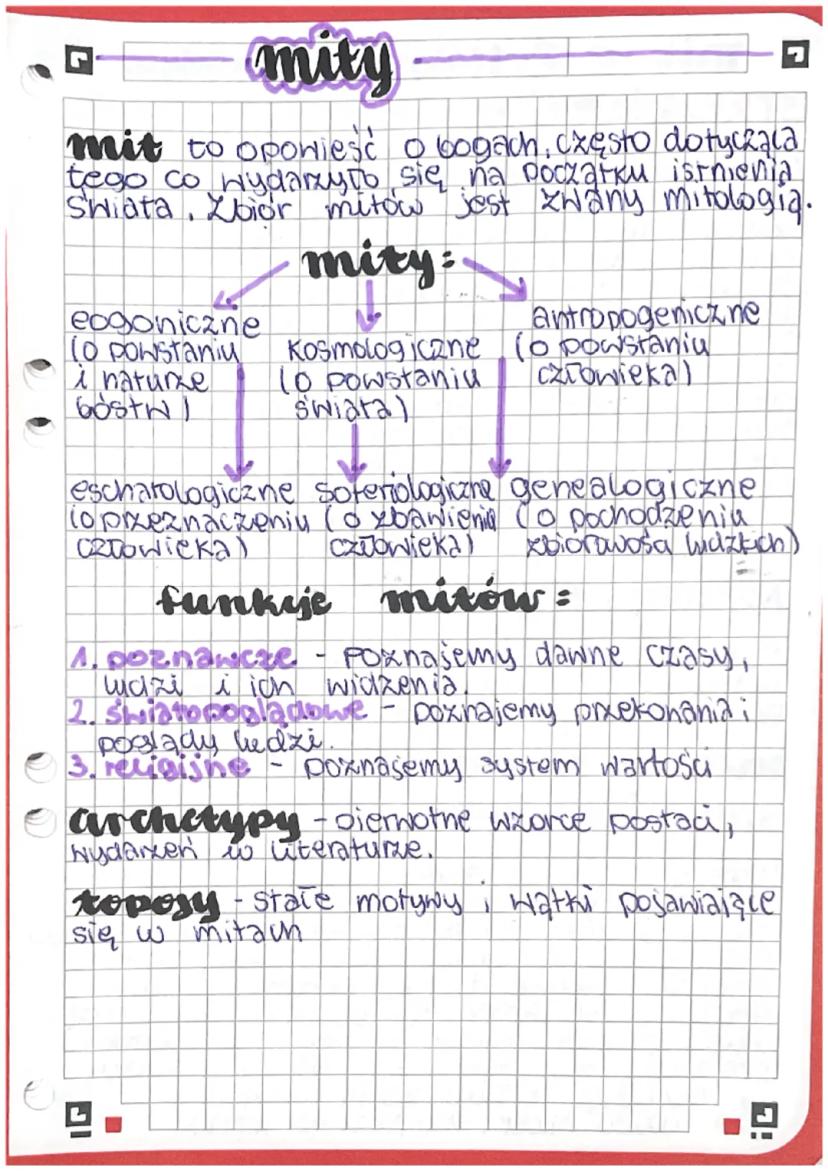 mity
mit to opowieść o bogach, często dotycząca
tego co wydarzyło się na początku istnienia
świata. Zbiór mitów jest zwany mitologią.
mity:
eogoniczne
(o powstaniu
i naturze
bóstw)
kosmologiczne
(o powstaniu
świata)
antropogeniczne
(o powstaniu
człowieka)
eschatologiczne
(o przeznaczeniu
człowieka)
soteriologiczne
(o zbawieniu
człowieka)
genealogiczne
(o pochodzeniu
zbiorowości ludzkich)
funkcje mitów:
1. poznawcze - poznajemy dawne czasy,
ludzi i ich widzenia.
2. światopoglądowe - poznajemy przekonania i
poglądy ludzi.
3. religijne - poznajemy system wartości
archetypy - pierwotne wzorce postaci,
wydarzeń w literaturze.
toposy - stałe motywy i wątki pojawiające
się w mitach